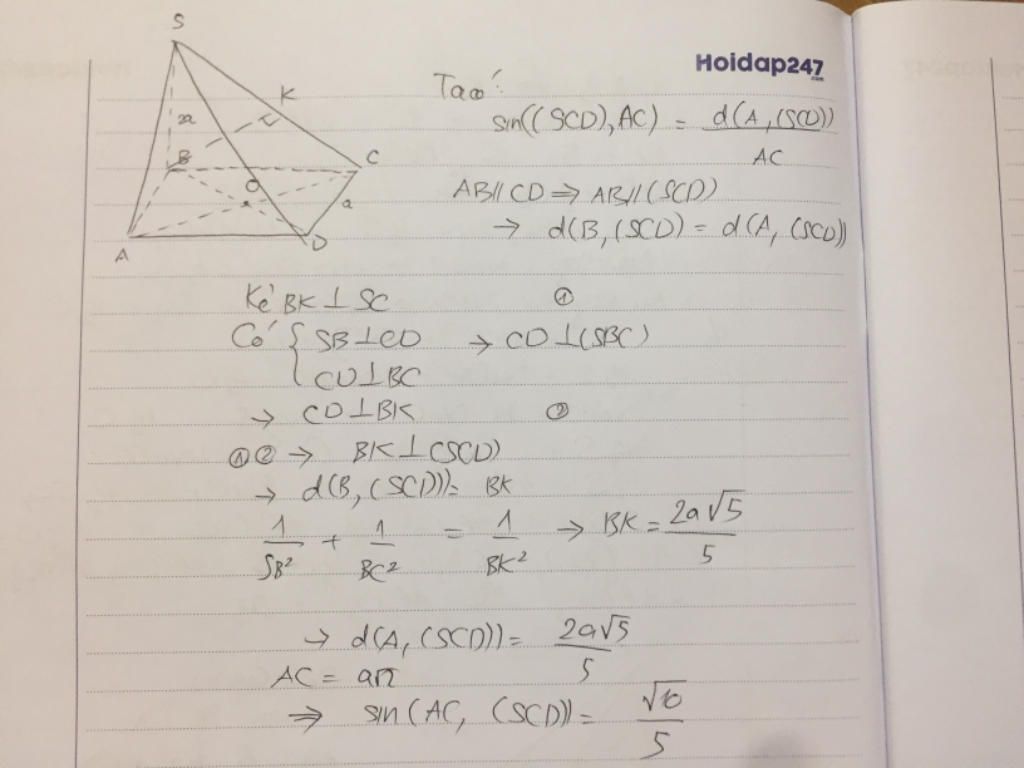 S
K
2a
B
C
O
a
A
D
Hoidap247
.com
Ta có:
sin((SCD), AC) = d(A, (SCD)) / AC
AB // CD ⇒ AB // (SCD)
→ d(B, (SCD) = d(A, (SCD))
Kẻ BK ⊥ SC ①
Có { SB ⊥ CD → CD ⊥ (SBC)
CD ⊥ BC
→ CD ⊥ BK ②
① ② → BK ⊥ (SCD)
→ d(B, (SCD)) = BK
1/SB² + 1/BC² = 1/BK² → BK = 2a√5/5
→ d(A, (SCD)) = 2a√5/5
AC = a√2
⇒ sin(AC, (SCD)) = √10/5